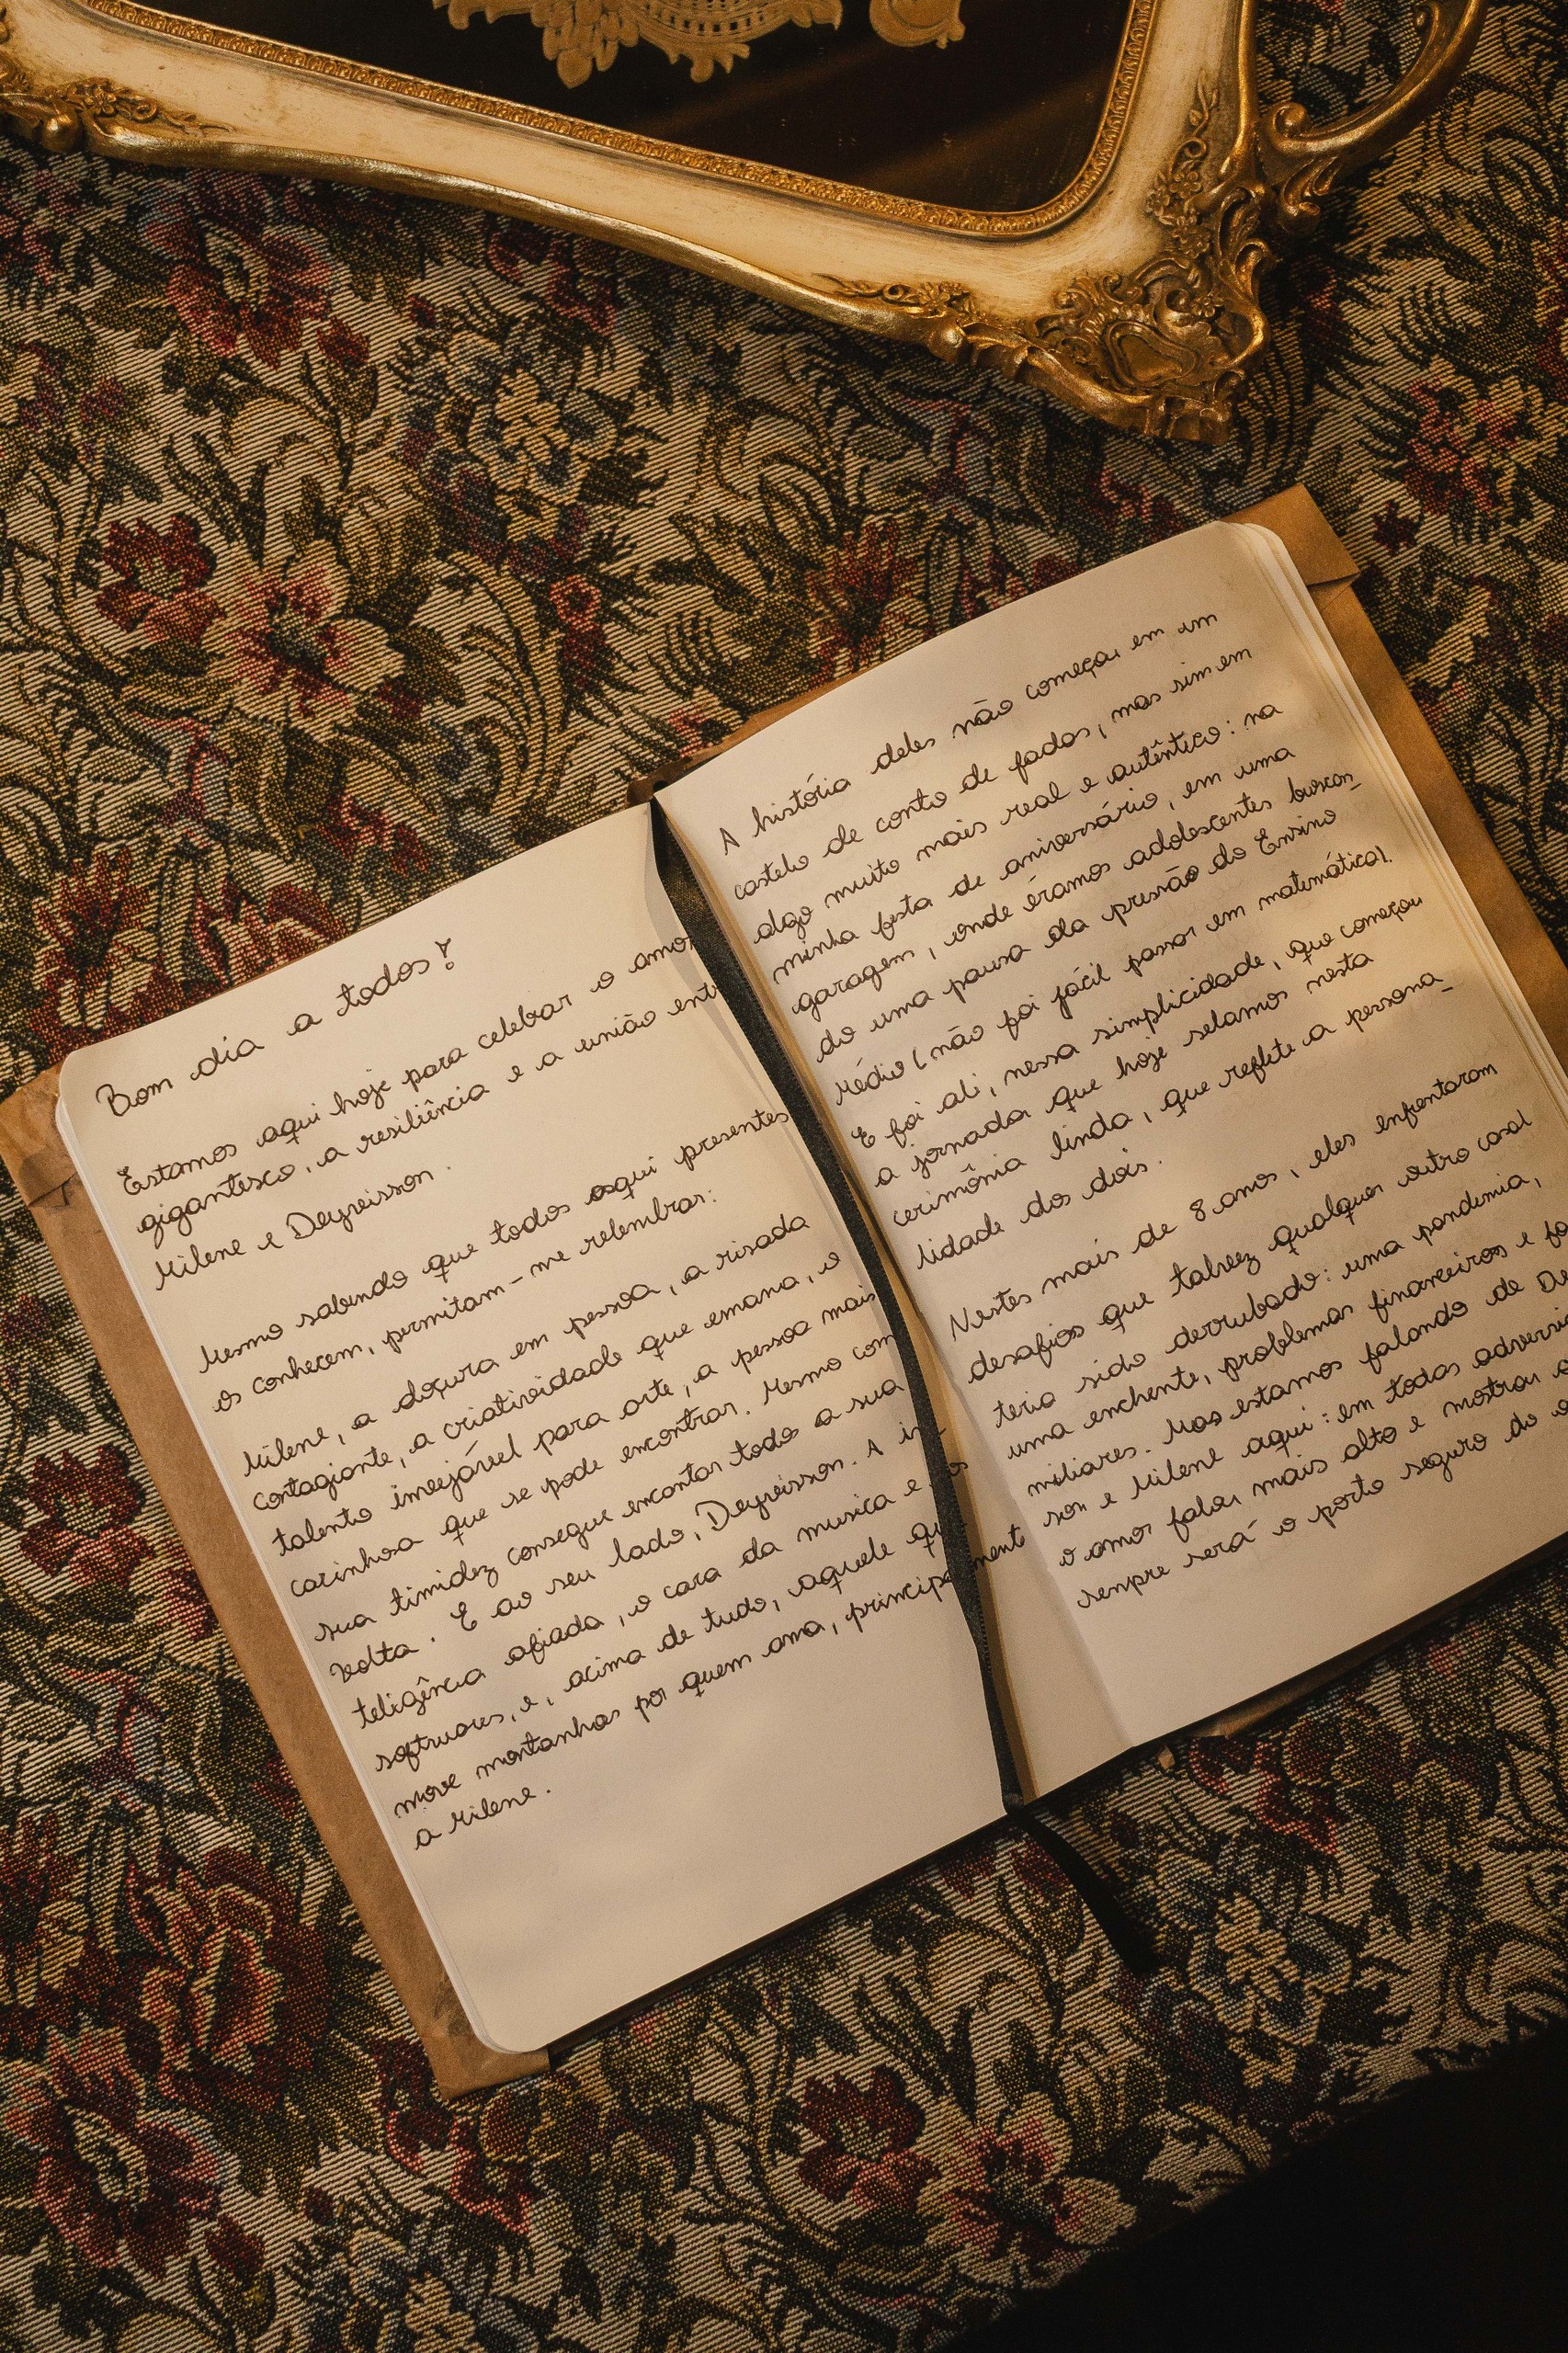 Bom dia a todos!
Estamos aqui hoje para celebrar o amor
gigantesco, a resiliência e a união entr
Milene e Deyveisson.
Mesmo sabendo que todos aqui presentes
os conhecem, permitam-me relembrar:
Milene, a doçura em pessoa, a risada
contagiante, a criatividade que emana, o
talento invejável para arte, a pessoa mais
carinhosa que se pode encontrar. Mesmo com
sua timidez consegue encantar todos a sua
volta. E ao seu lado, Deyveisson. A in-
teligência afiada, o cara da musica e
softwares, e, acima de tudo, aquele qu
move montanhas por quem ama, principalmente
a Milene.
A história deles não começou em um
castelo de conto de fadas, mas sim em
algo muito mais real e autêntico: na
minha festa de aniversário, em uma
garagem, onde éramos adolescentes buscan-
do uma pausa da pressão do Ensino
Médio (não foi fácil passar em matemática).
E foi ali, nessa simplicidade, que começou
a jornada que hoje selamos nesta
cerimônia linda, que reflete a persona-
lidade dos dois.
Nestes mais de 8 anos, eles enfrentaram
desafios que talvez qualquer outro casal
teria sido derrubado: uma pandemia,
uma enchente, problemas financeiros e fa
miliares. Mas estamos falando de De
son e Milene aqui: em todas adversi
o amor falou mais alto e mostrou
sempre será o porto seguro do